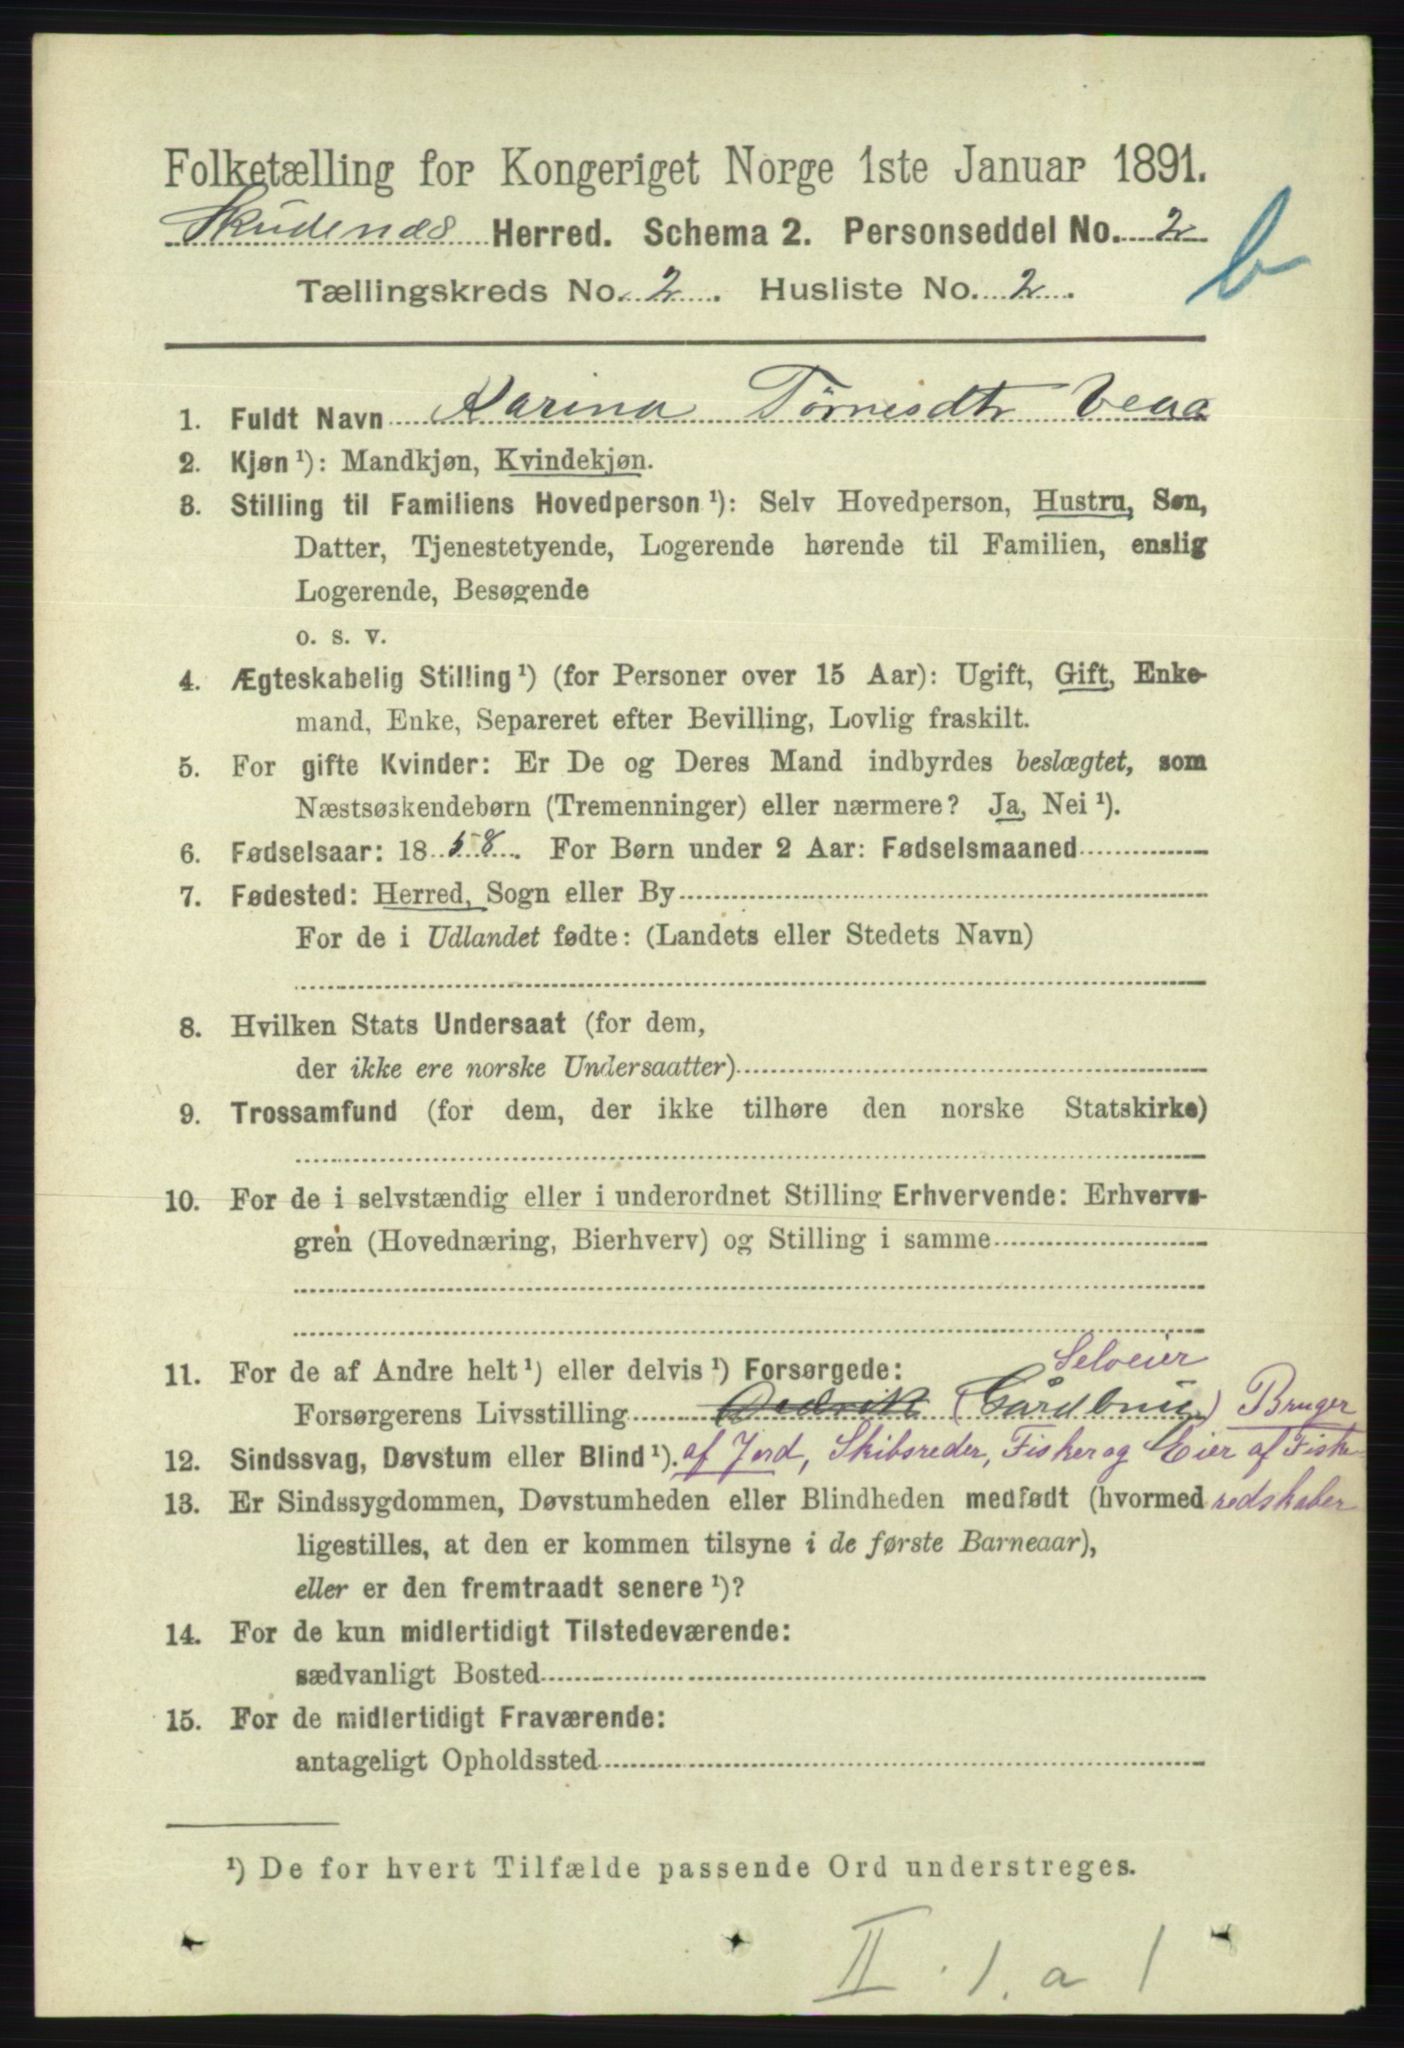 Folketælling for Kongeriget Norge 1ste Januar 1891.
Skudenæs Herred. Schema 2. Personseddel No. 2
b
Tællingskreds No. 2. Husliste No. 2.
1. Fuldt Navn Karina Tørresdtr Veaa
2. Kjøn ¹): Mandkjøn, Kvindekjøn.
3. Stilling til Familiens Hovedperson ¹): Selv Hovedperson, Hustru, Søn,
Datter, Tjenestetyende, Logerende hørende til Familien, enslig
Logerende, Besøgende
o. s. v.
4. Ægteskabelig Stilling ¹) (for Personer over 15 Aar): Ugift, Gift, Enke-
mand, Enke, Separeret efter Bevilling, Lovlig fraskilt.
5. For gifte Kvinder: Er De og Deres Mand indbyrdes beslægtet, som
Næstsøskendebørn (Tremenninger) eller nærmere? Ja, Nei ¹).
6. Fødselsaar: 1858. For Børn under 2 Aar: Fødselsmaaned
7. Fødested: Herred, Sogn eller By
For de i Udlandet fødte: (Landets eller Stedets Navn)
8. Hvilken Stats Undersaat (for dem,
der ikke ere norske Undersaatter)
9. Trossamfund (for dem, der ikke tilhøre den norske Statskirke)
10. For de i selvstændig eller i underordnet Stilling Erhvervende: Erhvervs-
gren (Hovednæring, Bierhverv) og Stilling i samme
Selveier
11. For de af Andre helt ¹) eller delvis ¹) Forsørgede:
Forsørgerens Livsstilling (Gårdbru) Bruger
12. Sindssvag, Døvstum eller Blind ¹). af Jord, Skibsreder, Fisker og Eier af Fiske-
13. Er Sindssygdommen, Døvstumheden eller Blindheden medfødt (hvormed redskaber
ligestilles, at den er kommen tilsyne i de første Barneaar),
eller er den fremtraadt senere ¹)?
14. For de kun midlertidigt Tilstedeværende:
sædvanligt Bosted
15. For de midlertidigt Fraværende:
antageligt Opholdssted
¹) De for hvert Tilfælde passende Ord understreges.
II . 1. a 1